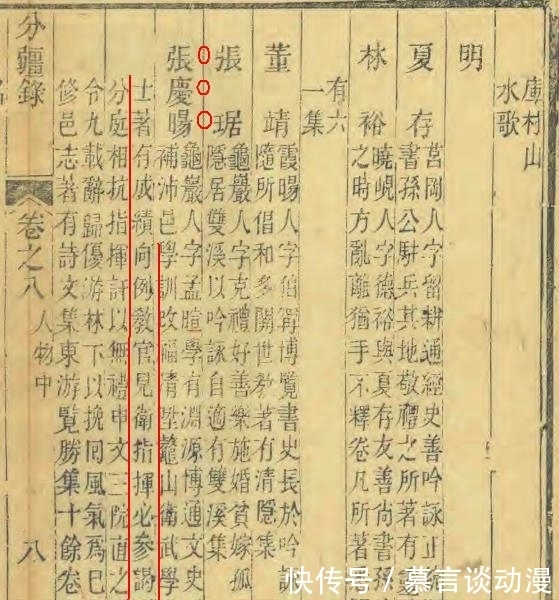 庫村山
水歌
明
夏存
莒岡人字留耕通經史善吟詠正
書孫公駐兵其地敬禮之所著有
林裕
曉峴人字德裕與夏存友善尚書
之時方亂離猶手不釋卷凡所著
有六
一集
董靖
霞暘人字伯博覽書史長於吟
隨所倡和多關世教著有清隱集
張琚
龜巖人字克禮好善樂施婚貧嫁孤
隱居雙溪以吟詠自適有雙溪集
張慶暘
龜巖人字孟暄學有淵源博通文史
補沛邑學訓改福清陞鼇山衛武學
士著有成績向例教官見衛指揮必參謁
分庭相抗指揮訐以無禮申文三院直之
令九載辭歸優游林下以挽囘風氣爲己
修邑志著有詩文集東游覽勝集十餘卷
分疆錄 卷之八 人物中 八
快传号 / 慕言谈动漫